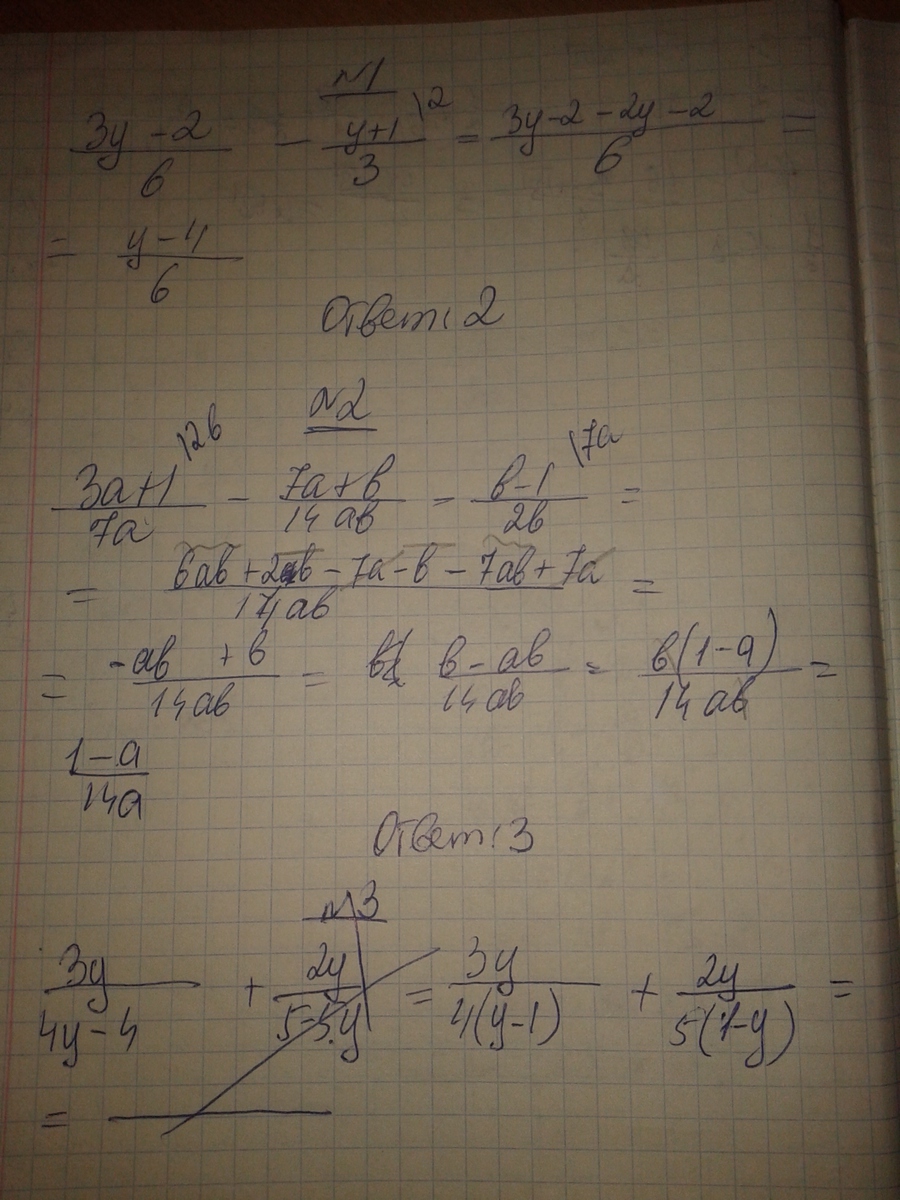 №1
3y-2/6 - y+1/3 \2 = 3y-2-2y-2/6 =
= y-4/6
Ответ: 2
№2
3a+1/7a \2в - 7a+в/14aв - в-1/2в \7a =
= 6aв+2в-7a-в-7aв+7a/14aв =
= -aв+в/14aв = в-aв/14aв = в(1-a)/14aв =
1-a/14a
Ответ: 3
№3
3y/4y-4 + 2y/5-5y = 3y/4(y-1) + 2y/5(1-y) =
=